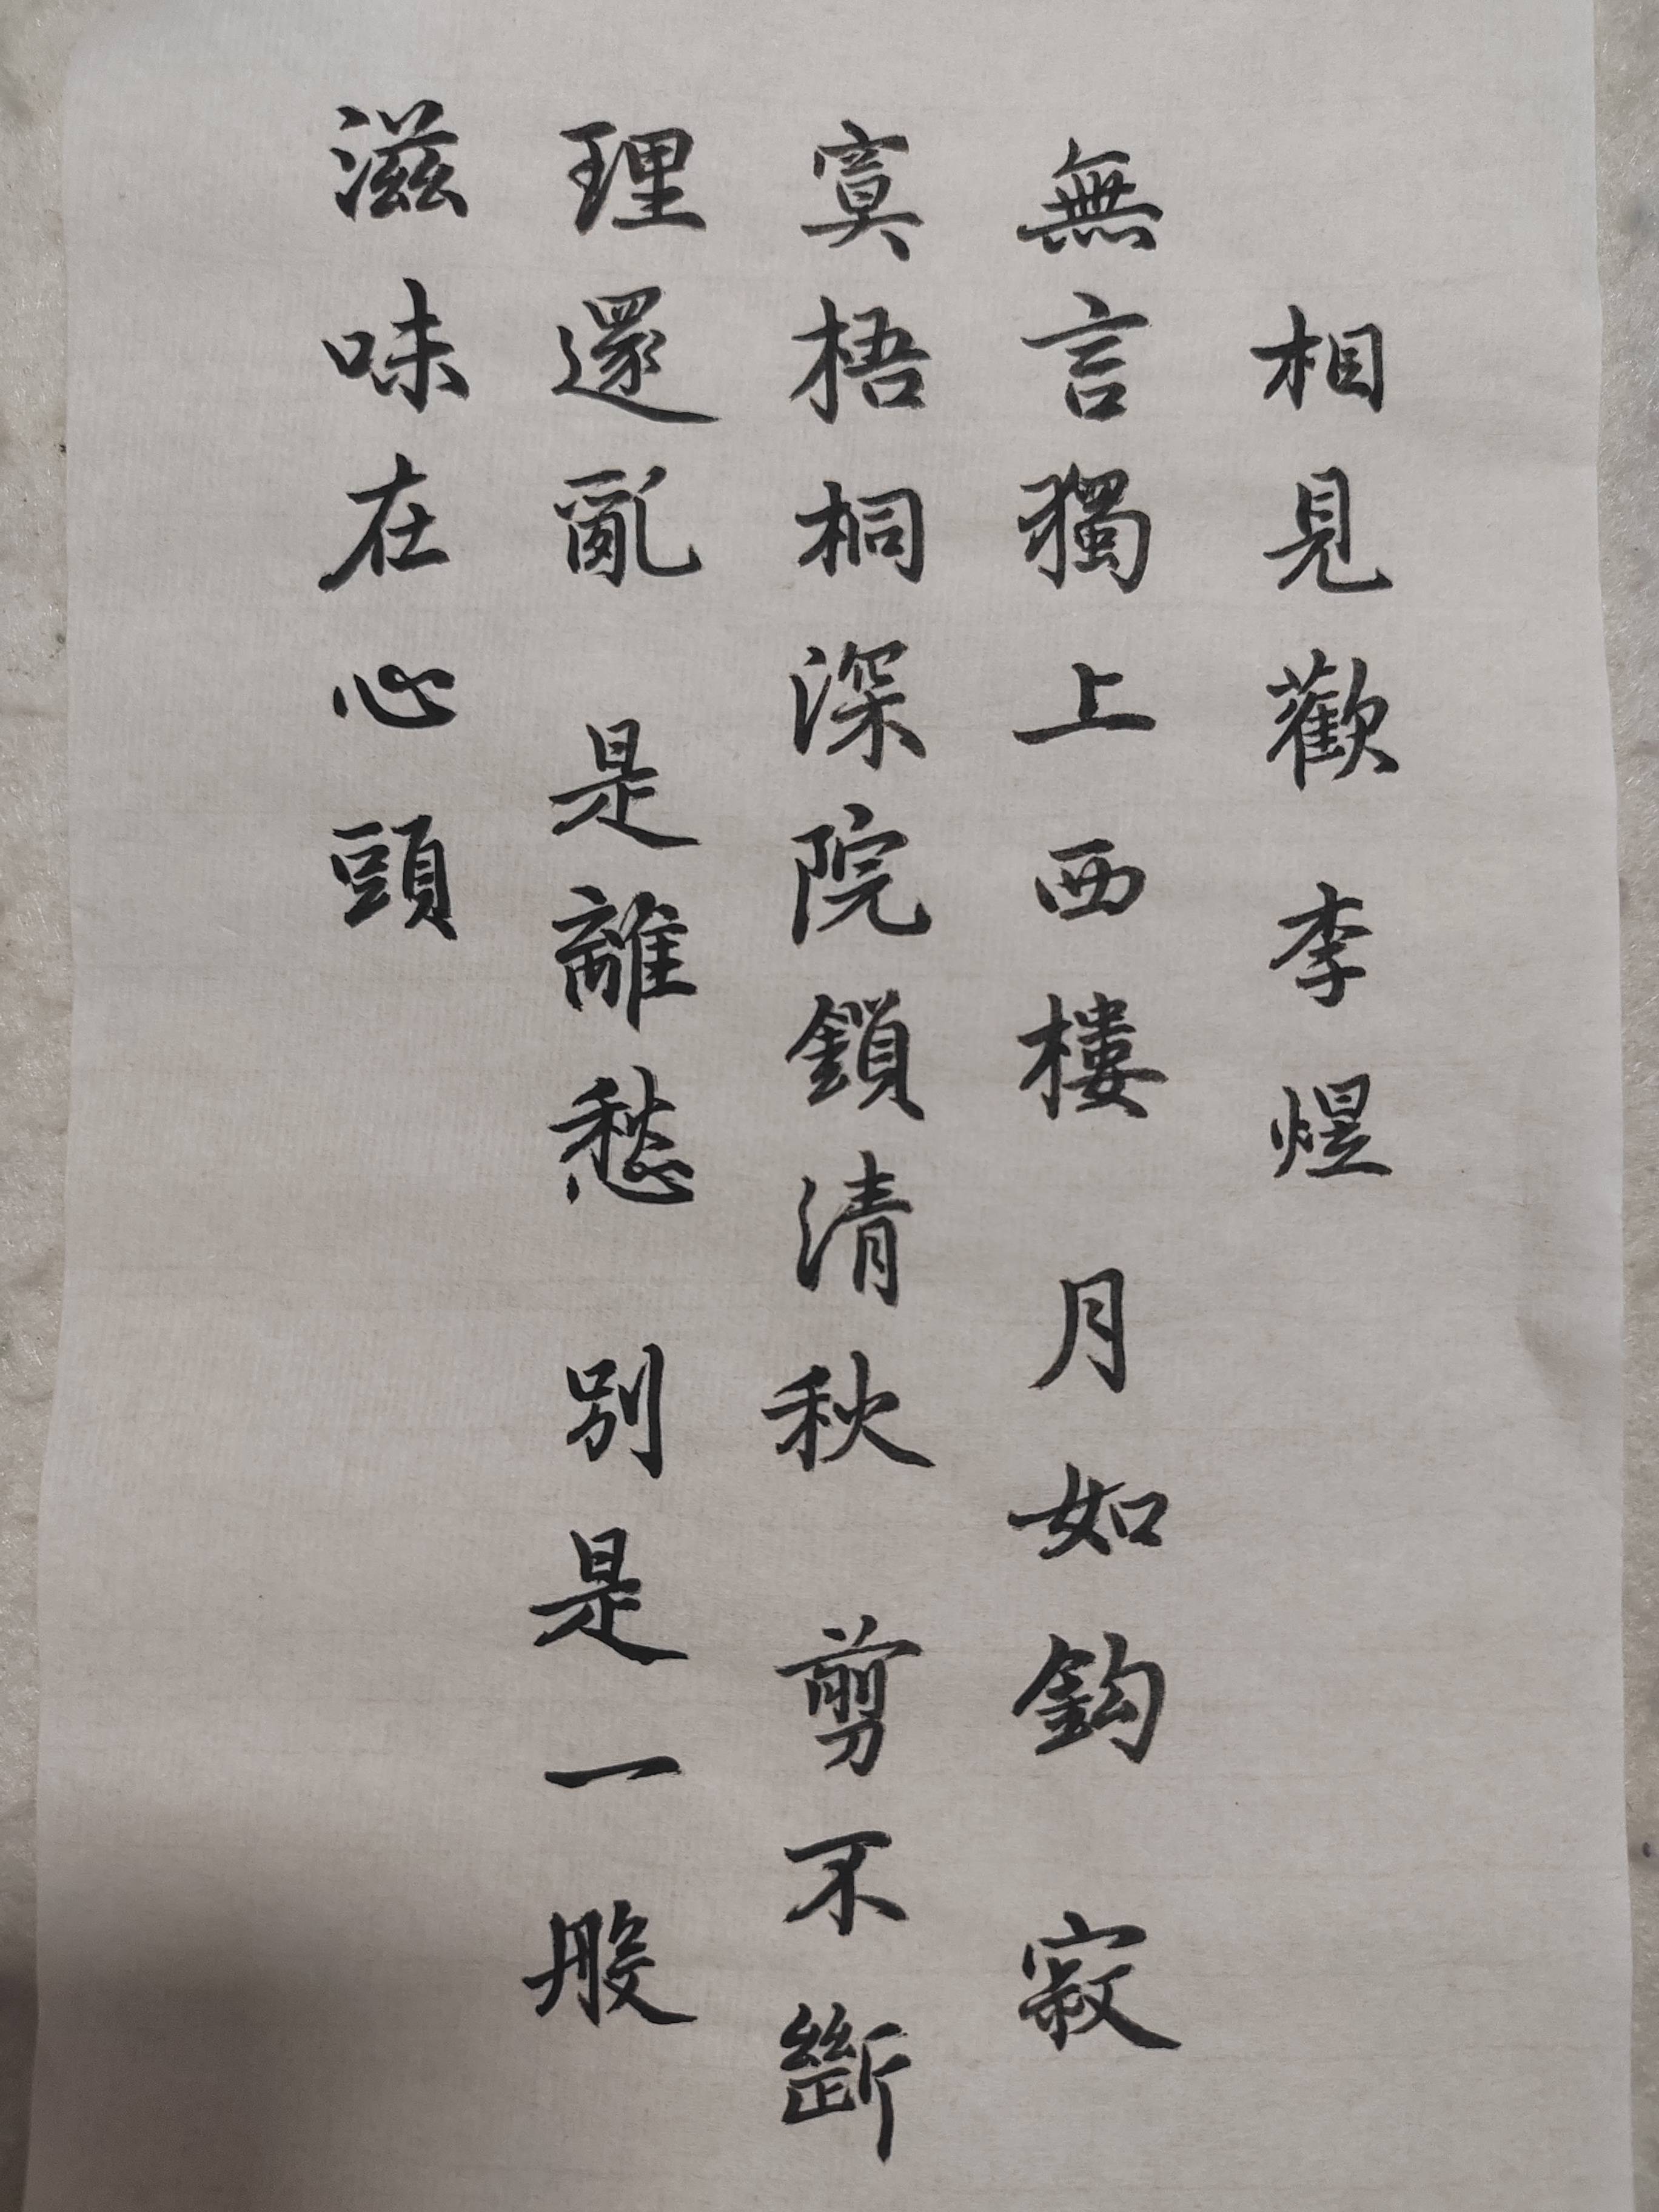 相見歡 李煜
無言獨上西樓 月如鈎 寂
寞梧桐深院鎖清秋 剪不斷
理還亂 是離愁 别是一般
滋味在心頭